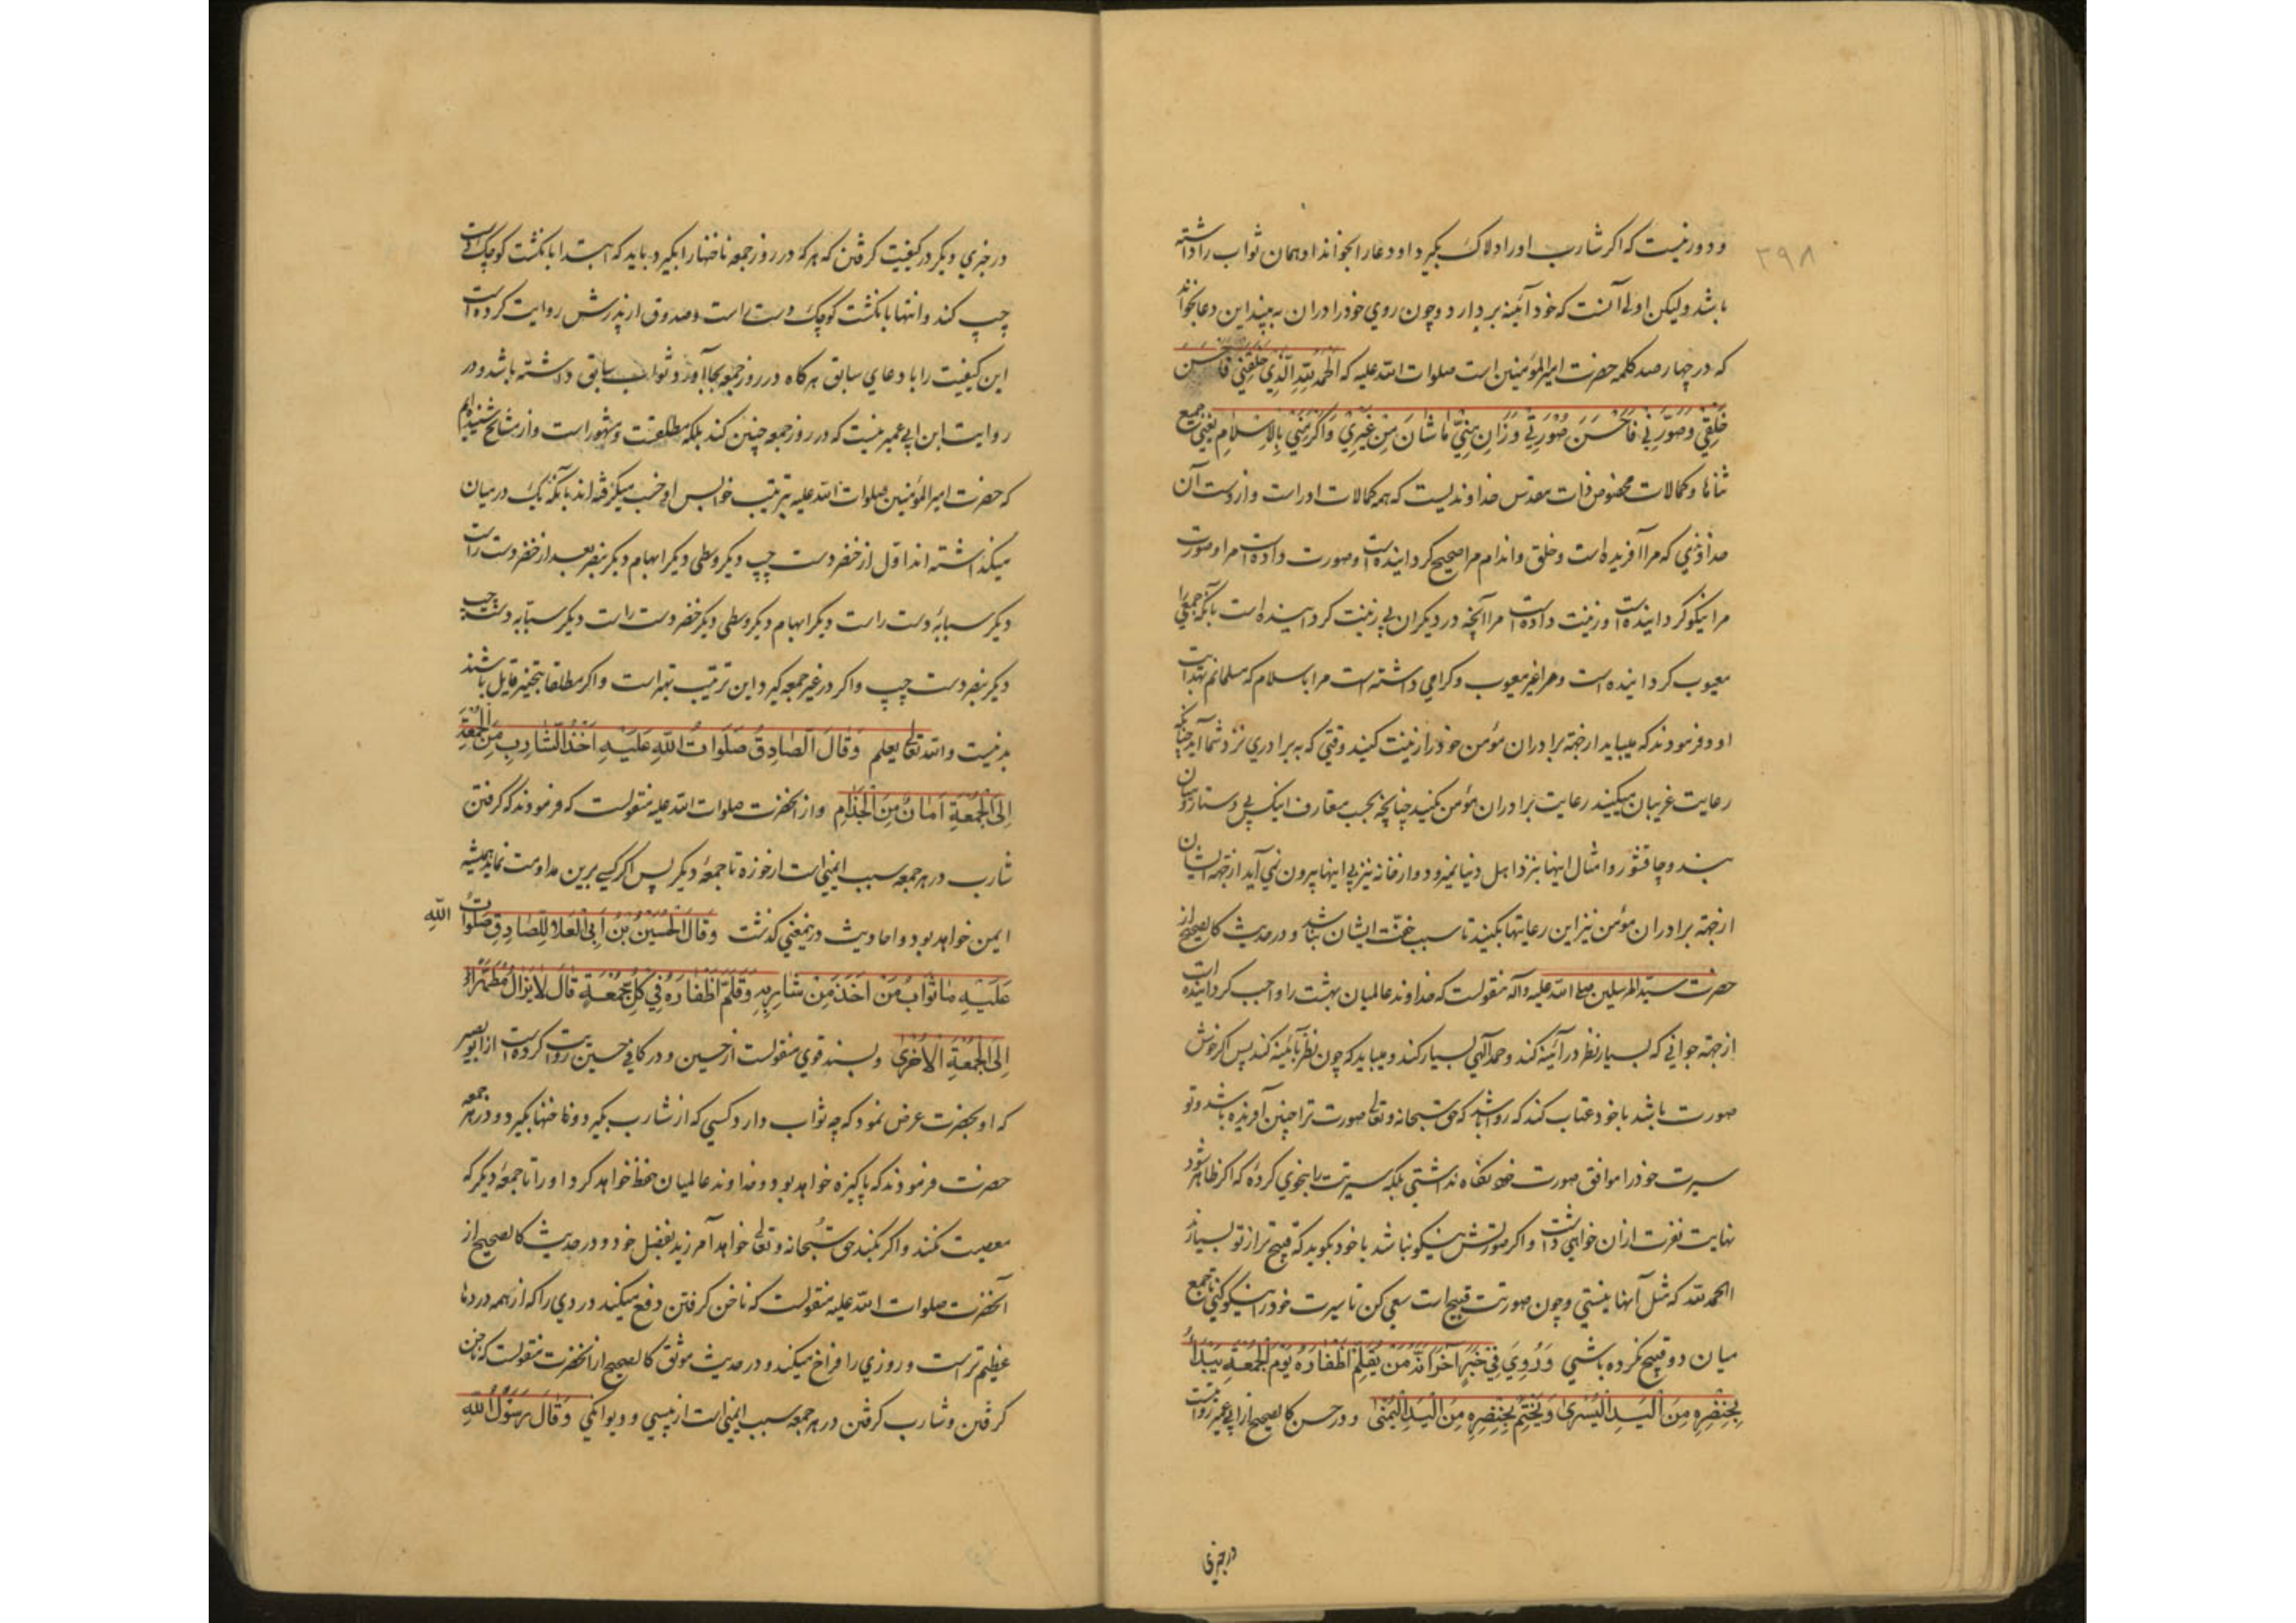 ۳۹۸
و دور نیست که اکر شارب اورا دلاک بکیرد او دعا را بخواند او همان ثواب را داشته
باشد ولیکن اولی آنست که خود آئینه بردارد و چون روی خود را در ان به بیند این دعا بخواند
که در چهار صد کلمه حضرت امیر المؤمنین است صلوات الله علیه که اَلْحَمْدُ لِلّٰهِ الَّذِي خَلَقَنِي فَاَحْسَنَ
خَلْقِي وَصَوَّرَنِي فَاَحْسَنَ صُورَتِي وَزَانَ مِنِّي مَا شَانَ مِنْ غَيْرِي وَاَكْرَمَنِي بِالْاِسْلَامِ یعنی جمیع
ثناها و کمالات مخصوص ذات مقدس خداوندیست که همه کمالات اوراست و ازوست آن
خداوندی که مرا آفریده است و خلق و اندام مرا صحیح کردانیده است و صورت داده است مرا و صورت
مرا نیکو کردانیده است و زینت داده است مرا آنچه در دیکران بی زینت کردانیده است بآنکه جمعی را
معیوب کردانیده است و مرا غیر معیوب و کرامی داشته است مرا باسلام که مسلمانم بهدایت
او و فرمودند که میباید از جهة برادران مؤمن خود را زینت کنید وقتی که به برادری نزد شما آید چنانکه
رعایت غریبان میکنید رعایت برادران مؤمن بکنید چنانچه بحسب متعارف اینک بی دستار و میان
بند و چاقشور و امثال اینها بنزد اهل دنیا نمیرود و از خانه نیز بی اینها بیرون نمی آید از جهة ایشان
از جهة برادران مؤمن نیز این رعایتها بکنید تا سبب خفت ایشان نباشد و در حدیث کالصحیح از
حضرت سید المرسلین صلی الله علیه و آله منقولست که خداوند عالمیان بهشت را واجب کردانیده است
از جهة جوانی که بسیار نظر در آئینه کند و حمد الهی بسیار کند و میباید که چون نظر بآئینه کند پس اکر خوش
صورت باشد با خود عتاب کند که روا باشد که حق سبحانه و تعالی صورت ترا چنین آفریده باشد و تو
سیرت خود را موافق صورت خود نکاه نداشتی بلکه سیرتت را بنحوی کرده که اکر ظاهر شود
نهایت نفرت از ان خواهی داشت و اکر صورتش نیکو نباشد با خود بکوید که قبیح تر از تو بسیارند
الحمد لله که مثل آنها نیستی و چون صورتت قبیح است سعی کن تا سیرت خود را نیکو کنی تا جمع
میان دو قبیح نکرده باشی وَرُوِيَ فِي خَبَرٍ آخَرَ اَنَّهُ مَنْ يُقَلِّمُ اَظْفَارَهُ يَوْمَ الْجُمُعَةِ يَبْدَاُ
بِخِنْصِرِهِ مِنَ الْيَدِ الْيُسْرٰى وَيَخْتِمُ بِخِنْصِرِهِ مِنَ الْيَدِ الْيُمْنٰى و در حسن کالصحیح از ابی عمیر روایتست
در خبری
در خبری دیکر در کیفیت کرفتن که هر که در روز جمعه ناخنها را بکیرد باید که ابتدا بانکشت کوچک دست
چپ کند و انتها بانکشت کوچک دست راست و صدوق از پدرش روایت کرده است
این کیفیت را با دعای سابق هرکاه در روز جمعه بجا آورد ثواب سابق داشته باشد و در
روایت ابن ابی عمیر نیست که در روز جمعه چنین کند بلکه مطلقست و مشهور است و از مشایخ شنیده ایم
که حضرت امیر المؤمنین صلوات الله علیه بترتیب خوابس اوخسب میکرفته اند بآنکه یک در میان
میکذاشته اند اول از خنصر دست چپ دیکر وسطی دیکر ابهام دیکر بنصر بعد از خنصر دست راست
دیکر سبابه دست راست دیکر ابهام دیکر وسطی دیکر خنصر دست راست دیکر سبابه دست چپ
دیکر بنصر دست چپ و اکر در غیر جمعه کیرد این ترتیب بهتر است و اکر مطلقا بتخییر قایل باشند
بد نیست و الله تعالی یعلم وَقَالَ الصَّادِقُ صَلَوَاتُ اللهِ عَلَيْهِ اَخْذُ الشَّارِبِ مِنَ الْجُمُعَةِ
اِلَى الْجُمُعَةِ اَمَانٌ مِنَ الْجُذَامِ و از انحضرت صلوات الله علیه منقولست که فرمودند که کرفتن
شارب در هر جمعه سبب ایمنی است از خوره تا جمعه دیکر پس اکر کسی برین مداومت نماید همیشه
ایمن خواهد بود و احادیث درینمعنی کذشت وَقَالَ الْحُسَيْنُ بْنُ اَبِي الْعَلَا لِلصَّادِقِ صَلَوَاتُ اللهِ
عَلَيْهِ مَا ثَوَابُ مَنْ اَخَذَ مِنْ شَارِبِهِ وَقَلَّمَ اَظْفَارَهُ فِي كُلِّ جُمُعَةٍ قَالَ لَا يَزَالُ مُطَهَّرًا
اِلَى الْجُمُعَةِ الْاُخْرٰى و بسند قوی منقولست از حسین و در کافی حسین روایت کرده است از ابو بصیر
که او بحضرت عرض نمود که چه ثواب دارد کسی که از شارب بکیرد و ناخنها بکیرد در هر جمعه
حضرت فرمودند که پاکیزه خواهد بود و خداوند عالمیان حفظ خواهد کرد اورا تا جمعه دیکر که
معصیت نکند و اکر بکند حق سبحانه و تعالی خواهد آمرزید بفضل خود و در حدیث کالصحیح از
آنحضرت صلوات الله علیه منقولست که ناخن کرفتن دفع میکند دردی را که از همه دردها
عظیم تر است و روزی را فراخ میکند و در حدیث موثق کالصحیح از انحضرت منقولست که ناخن
کرفتن و شارب کرفتن در هر جمعه سبب ایمنی است از پیسی و دیوانکی وَقَالَ رَسُولُ اللهِ